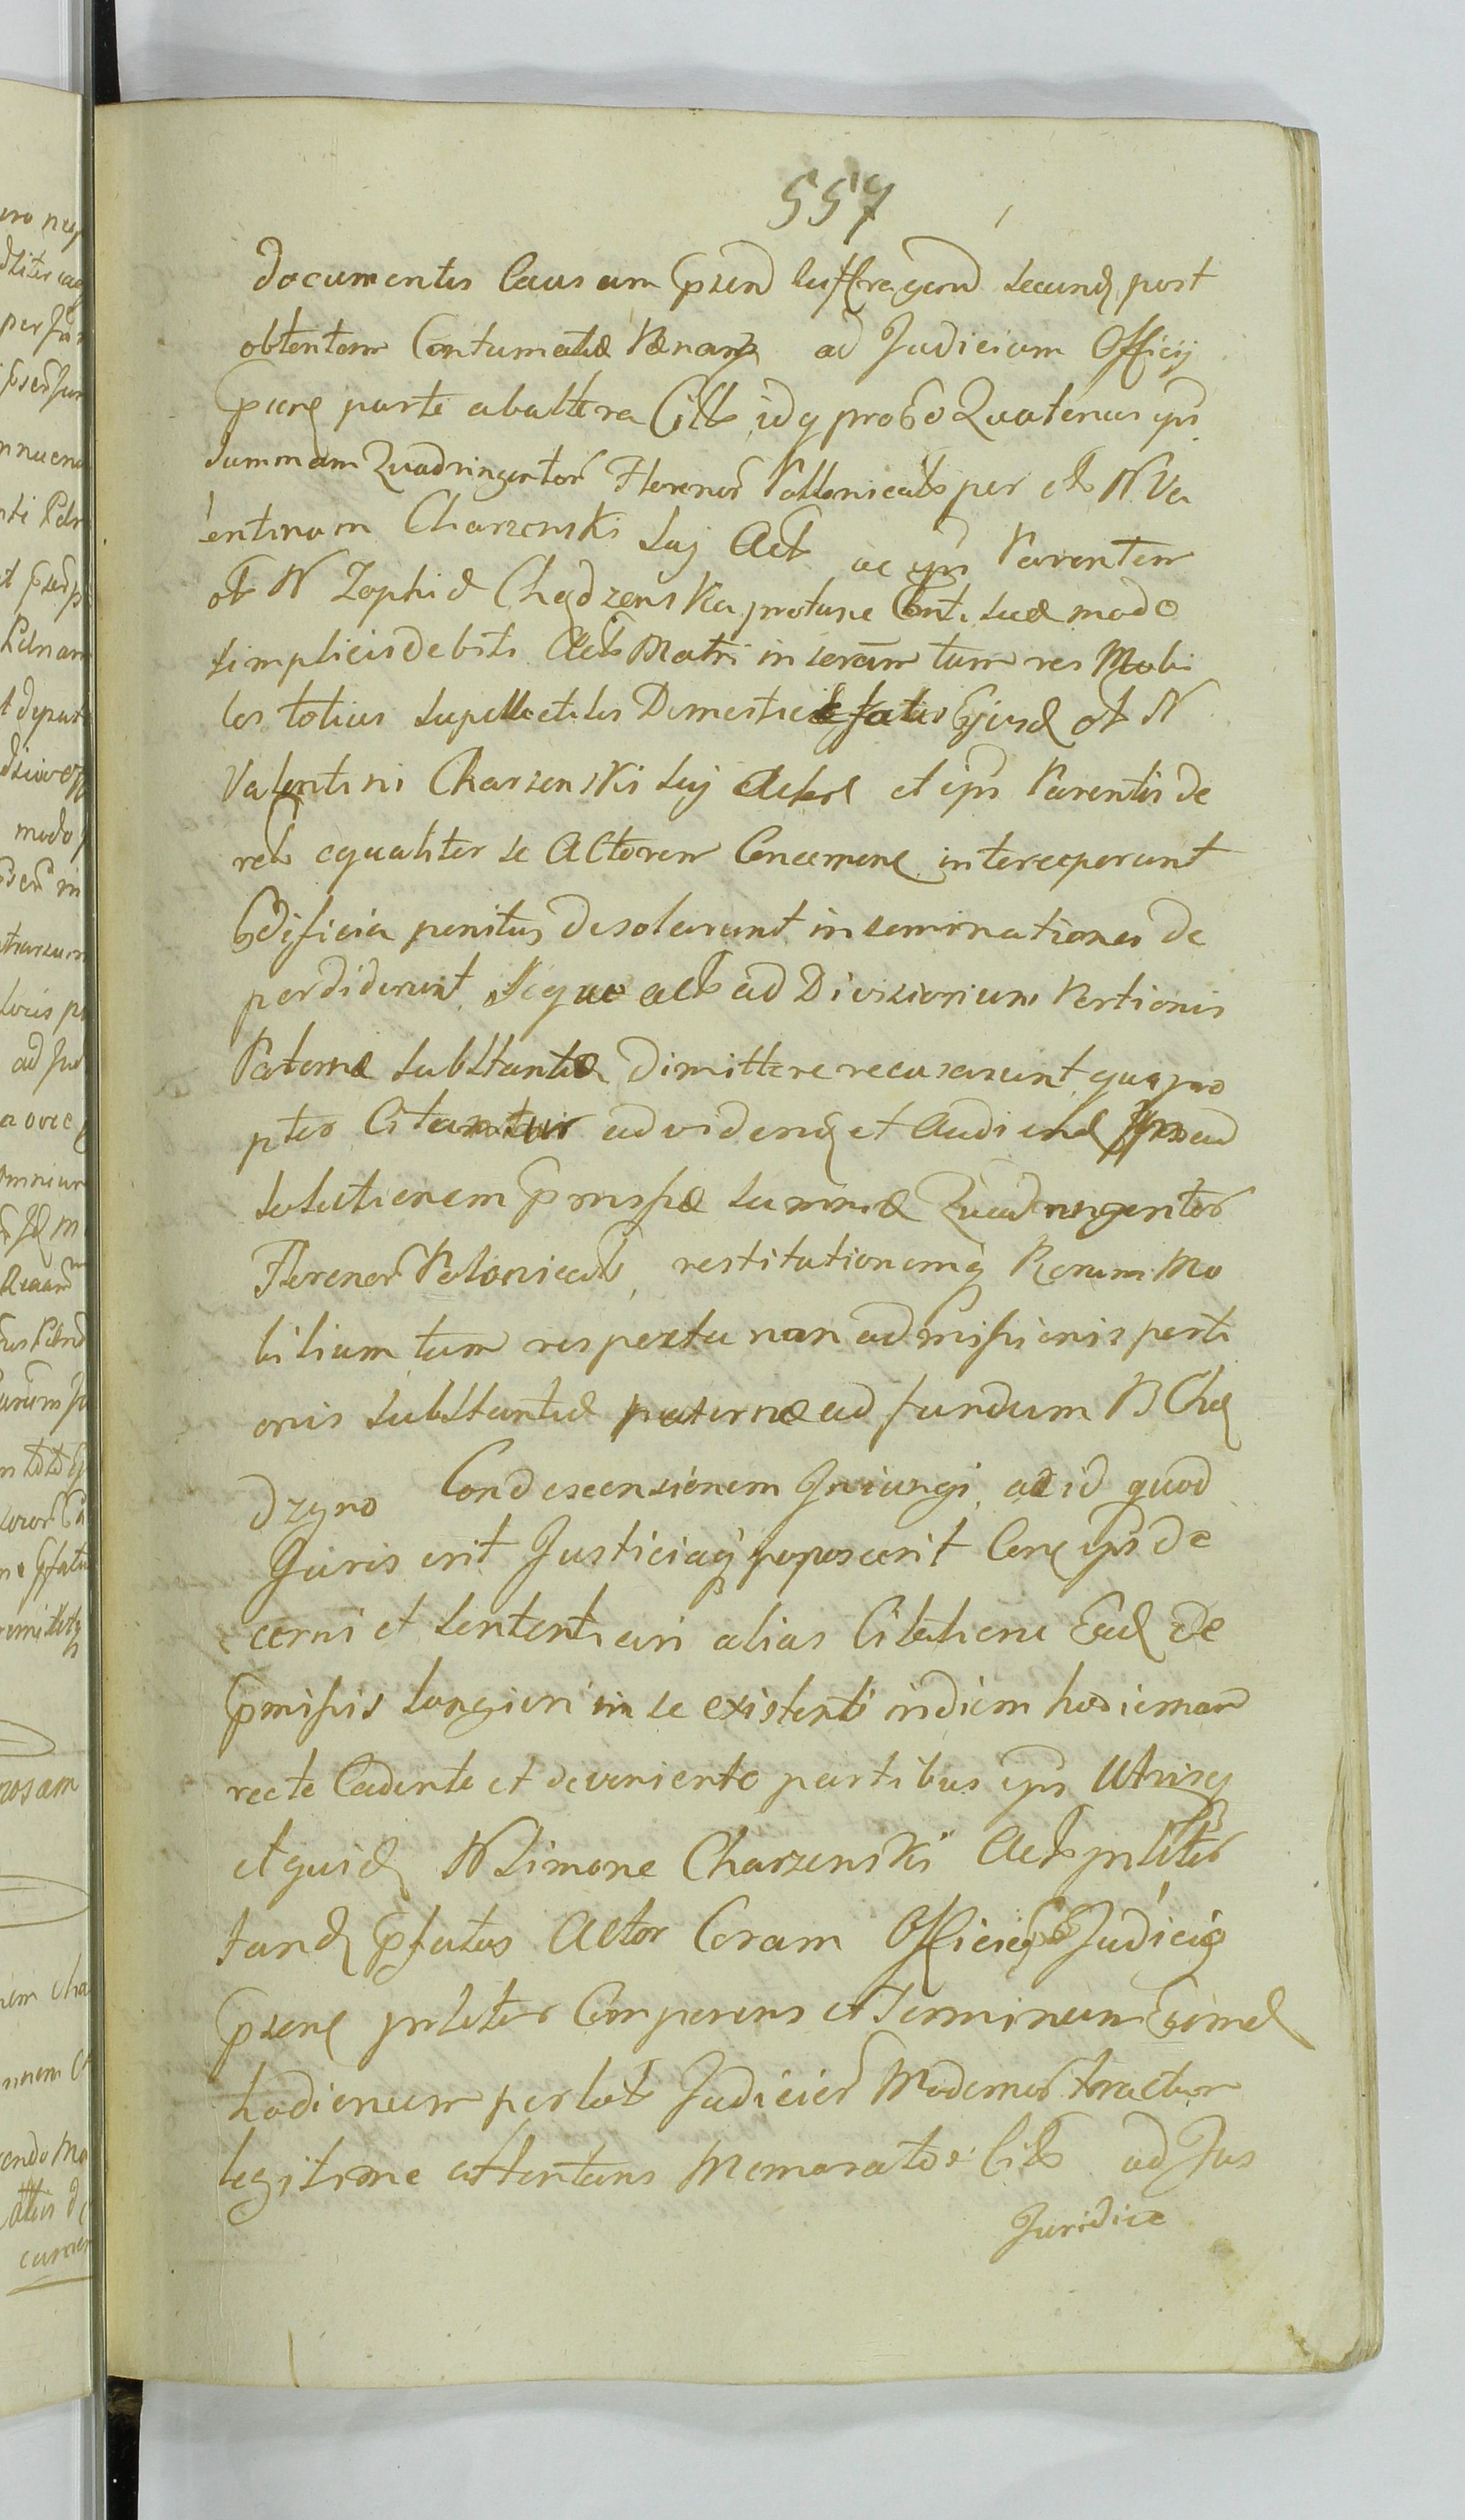 557
documentis Causam Psend suffragand secund post
obtentam Contumatiæ Pænam ad Judicium Officij
Psens parte ab altera Citt idq probo Quatenus ipsi
Summam Quadringentor Florenor Pollonicals per ol N Va
lentinum Charzenski Suj Act ac ipsi Parentem
ol N Zophiæ Chądzenska protunc Conti suæ modo
simplicis debiti Acts Matri inscram tum res Mobi
les totius supellectiles Domesticæ satis Ejusd ol N
Valentini Charzenskis Suj Actors et ipsi Parentis de
rels equaliter se Actorem Concernens interceperunt
Edificia penitus desolarunt inseminationes de
perdiderunt Seque acts ad Divisionum Portionis
Paternæ substantiæ dimittere recusarunt, quapro
pter Citantur ad vidend et Audiend ad
Solutionem Pmissæ summæ Quadringentor
Florenor Polonicals, restitutionemq Rerum Mo
bilium tum respectu non admissionis porti
onis substantiæ paternæ ad fundum B Chą
dzyno Condescensionem Injungi, ac id quod
Juris erit Justiciaq poposcerit Conc ipsis de
cerni et sententiari alias Citatione Ead de
Pmissis longiori in se existenti in diem hodiernam
recte Cadente et deveniente partibus ipsis Utrisq
et quid N Simone Charzenski Acts pnliter
tand Pfatus Actor Coram Officio Judicioq
Psens pnliter Comparens et Terminum Eumd
hodiernum perlat Judicior Modernor tractum
legitime attentans Memoratos Cits ad Jus
Juridice